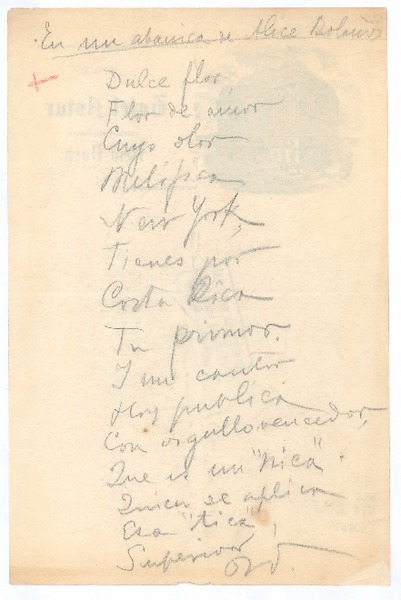 En un abanico de Alice Bolaños
Dulce flor
Flor de amor
Cuyo olor
Melifica
New York,
Tienes por
Costa Rica
Tu primor.
I un cantor
Hoy publica
Con orgullo vencedor,
Que es un "nica"
Quien se aplica
Esa "tica",
Superior